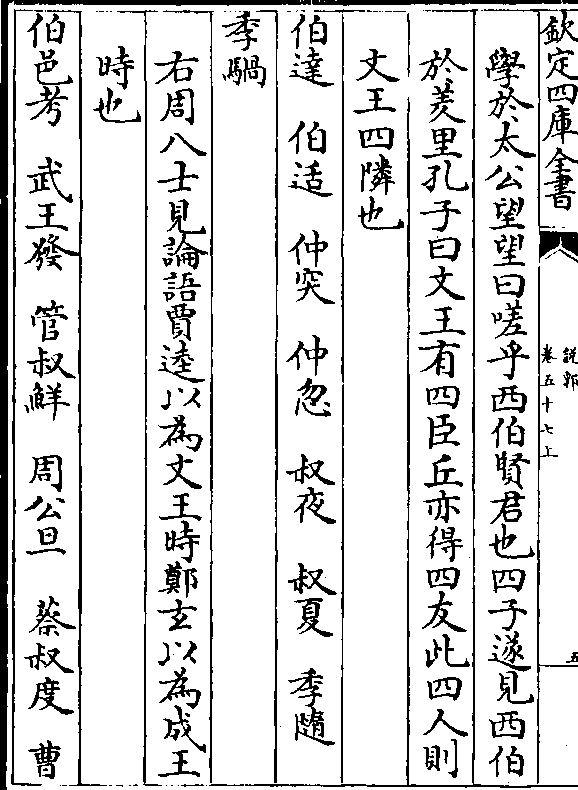 欽定四庫全書
說郛
卷五十七上
五
學於太公望望曰嗟乎西伯賢君也四子遂見西伯
於羑里孔子曰文王有四臣丘亦得四友此四人則
文王四隣也
伯達 伯适 仲突 仲忽 叔夜 叔夏 季隨
季騧
右周八士見論語賈逵以為文王時鄭玄以為成王
時也
伯邑考 武王發 管叔鮮 周公旦 蔡叔度 曹